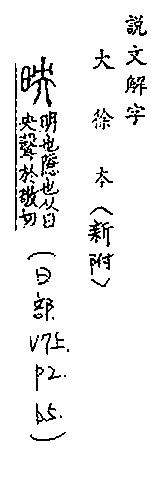 說文解字
大徐本(新附)
明也隱也从日
央聲於敬切
(日部.V7上.P2.b5.)